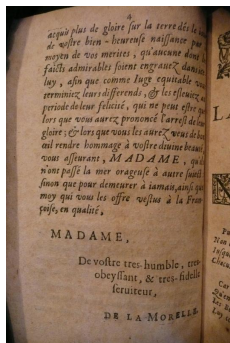 4
acquis plus de gloire sur la terre dés le
de vostre bien-heureuse naissance par
moyen de vos merites, qu'aucune dont
faicts admirables soient engrauez dans
luy, afin que comme Iuge equitable vous
terminiez leurs differends, & les esleuiez au
periode de leur felicité, qui ne peut estre
lors que vous aurez prononcé l'arrest de leur
gloire; & lors que vous les aurez veus de
rendre hommage à vostre diuine beauté
vous asseurant, MADAME, qu'ils
n'ont passé la mer orageuse à autre suiect
sinon que pour demeurer à iamais, ainsi que
moy qui vous les offre vestus à la Fran
çoise, en qualité,
MADAME,
De vostre tres-humble, tres-
obeyssant, & tres-fidelle
seruiteur,
DE LA MORELLE.
LA
N